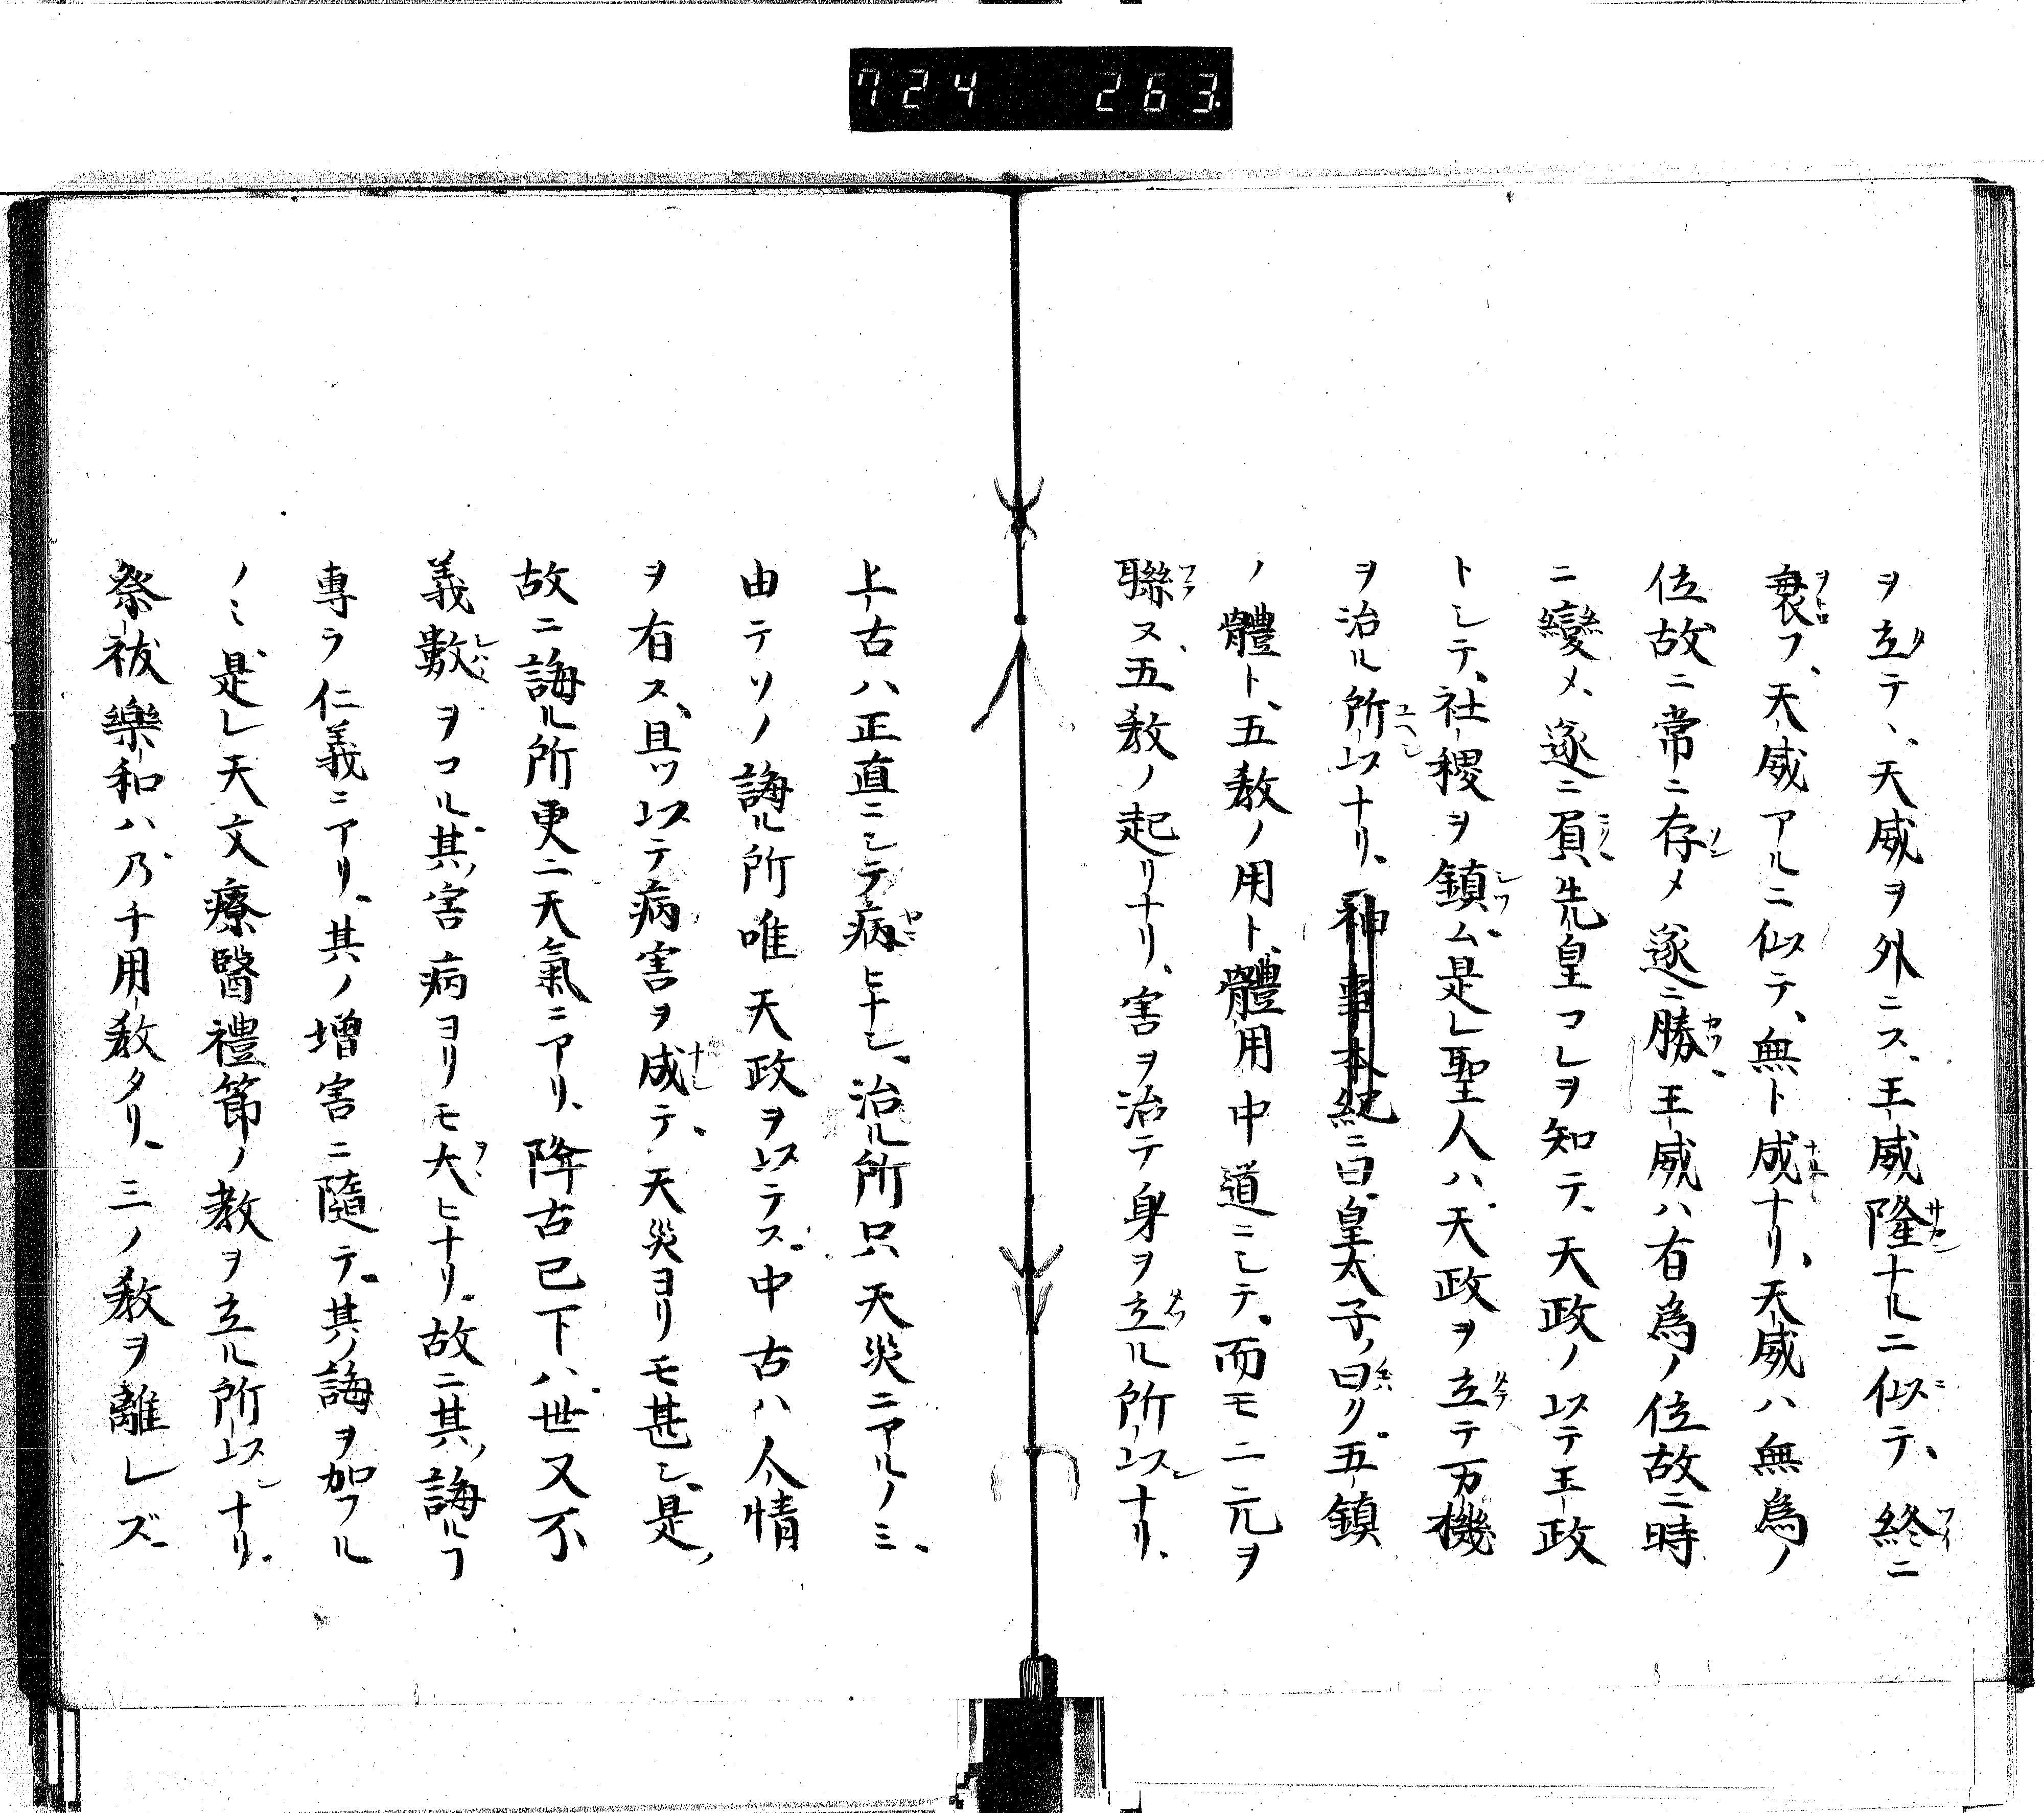 724 263.
ヲ立テ丶、天威ヲ外ニス、王威隆ナルニ似テ、終ニ
衰フ、天威アルニ似テ、無ト成ナリ、天威ハ無為ノ
位故ニ常ニ存メ遂ニ勝、王威ハ有為ノ位故ニ時
ニ變メ、遂ニ負、先皇コレヲ知テ、天政ノ以テ王政
トシテ、社稷ヲ鎮ム、是レ聖人ハ天政ヲ立テ万機
ヲ治ル所以ナリ、神事本紀ニ曰、皇太子ノ曰ク、五鎮
ノ體ト、五教ノ用ト、體用中道ニシテ、而モ二元ヲ
聯ヌ、五教ノ起リナリ、害ヲ治テ身ヲ立ル所以ナリ、
上古ハ正直ニシテ病ヒナシ、治ル所只天災ニアルノミ、
由テソノ誨ル所唯天政ヲ以テス、中古ハ人情
ヲ有ス、且ツ以テ病害ヲ成テ、天災ヨリモ甚シ、是ノ
故ニ誨ル所更ニ天氣ニアリ、降古已下ハ世又不
義數ヲコル、其ノ害病ヨリモ大ヒナリ、故ニ其ノ誨ルフ
專ラ仁義ニアリ、其ノ増害ニ隨テ、其ノ誨ヲ加フル
ノミ、是レ天文療醫禮節ノ教ヲ立ル所以ナリ、
祭祓樂和ハ乃チ用教タリ、三ノ教ヲ離レズ、